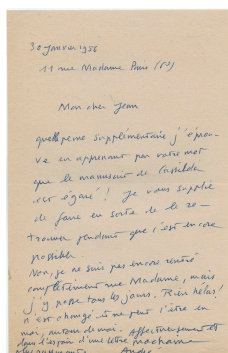 30 Janvier 1956
11 rue Madame Paris (6e)
Mon cher Jean
quelle peine supplémentaire j'éprou-
ve en apprenant par votre mot
que le manuscrit de
est égaré ! Je vous supplie
de faire en sorte de le re-
trouver pendant que c'est encore
possible.
Non, je ne suis pas encore rentré
complètement rue Madame, mais
j'y passe tous les jours. Rien hélas !
n'est changé et ne peut l'être en
moi, autour de moi. Affectueusement et
dans l'espoir d'une lettre prochaine
André